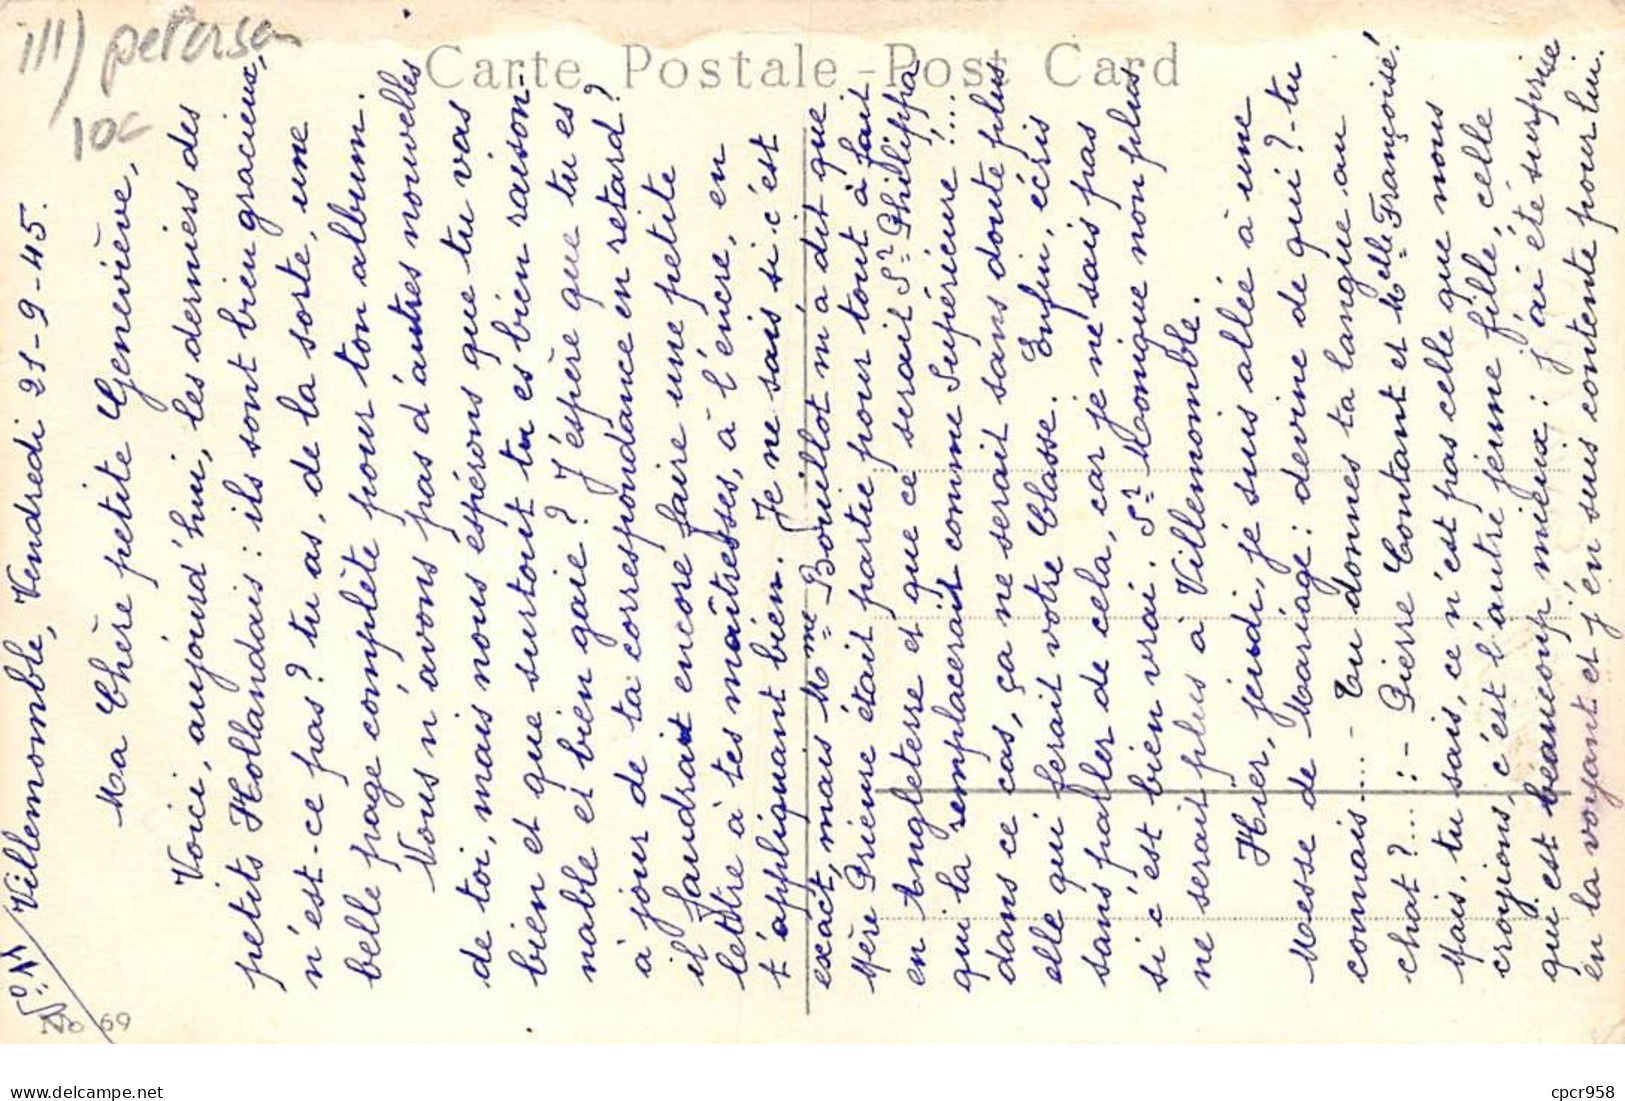 ill) petersen
10c
Carte Postale - Post Card
No 69
N° 11
Villemomble, Vendredi 21-9-45.
Ma Chère petite Geneviève,
Voici, aujourd'hui, les derniers des
petits Hollandais : ils sont bien gracieux,
n'est-ce pas ? tu as, de la sorte, une
belle page complète pour ton album.
Nous n'avons pas d'autres nouvelles
de toi, mais nous espérons que tu vas
bien et que surtout tu es bien raison-
nable et bien gaie ? J'espère que tu es
à jour de ta correspondance en retard ?
il faudrait encore faire une petite
lettre à tes maîtresses, à l'encre, en
t'appliquant bien. Je ne sais si c'est
exact, mais Mme Bouillot m'a dit que
Mère Prieure était partie pour tout à fait
en Angleterre et que ce serait Sr Philippa
qui la remplacerait comme Supérieure !....
dans ce cas, ça ne serait sans doute plus
elle qui ferait votre Classe. Enfin, écris
sans parler de cela, car je ne sais pas
si c'est bien vrai. Sr Monique non plus
ne serait plus à Villemomble.
Hier, jeudi, je suis allée à une
Messe de Mariage : devine de qui ? - tu
connais.... - Tu donnes ta langue au
chat ?.... :- Pierre Contant et Melle Françoise !
Mais, tu sais, ce n'est pas celle que nous
croyions, c'est l'autre jeune fille, celle
qui est beaucoup mieux : j'ai été surprise
en la voyant et j'en suis contente pour lui.
www.delcampe.net
cpcr958